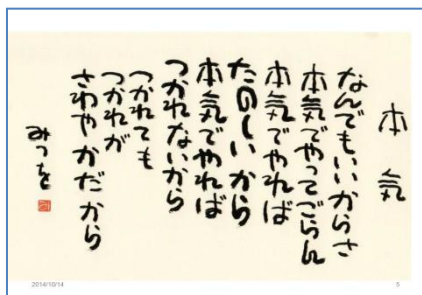 本気
なんでもいいからさ
本気でやってごらん
本気でやれば
たのしいから
本気でやれば
つかれないから
つかれても
つかれが
さわやかだから
みつを
2014/10/14
5